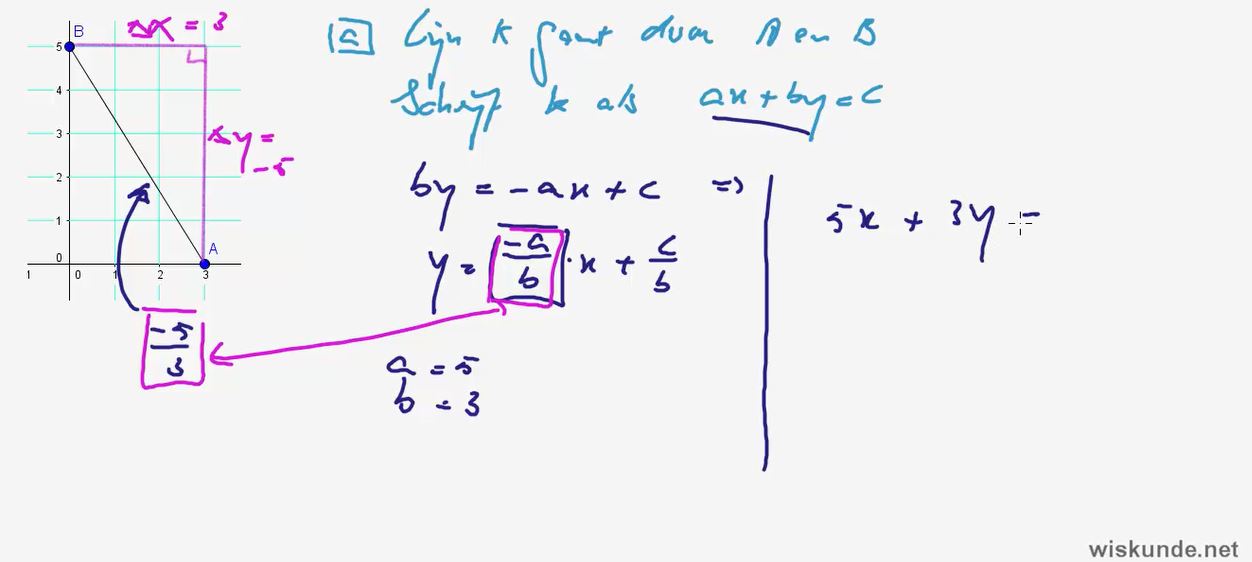 Δx = 3
B
5
4
3
2
1
0
Δy =
-5
A
1 0 1 2 3
-5/3
a Lijn k gaat door A en B
Schrijf k als ax + by = c
by = -ax + c ⇒
y = -a/b · x + c/b
a = 5
b = 3
5x + 3y =
wiskunde.net